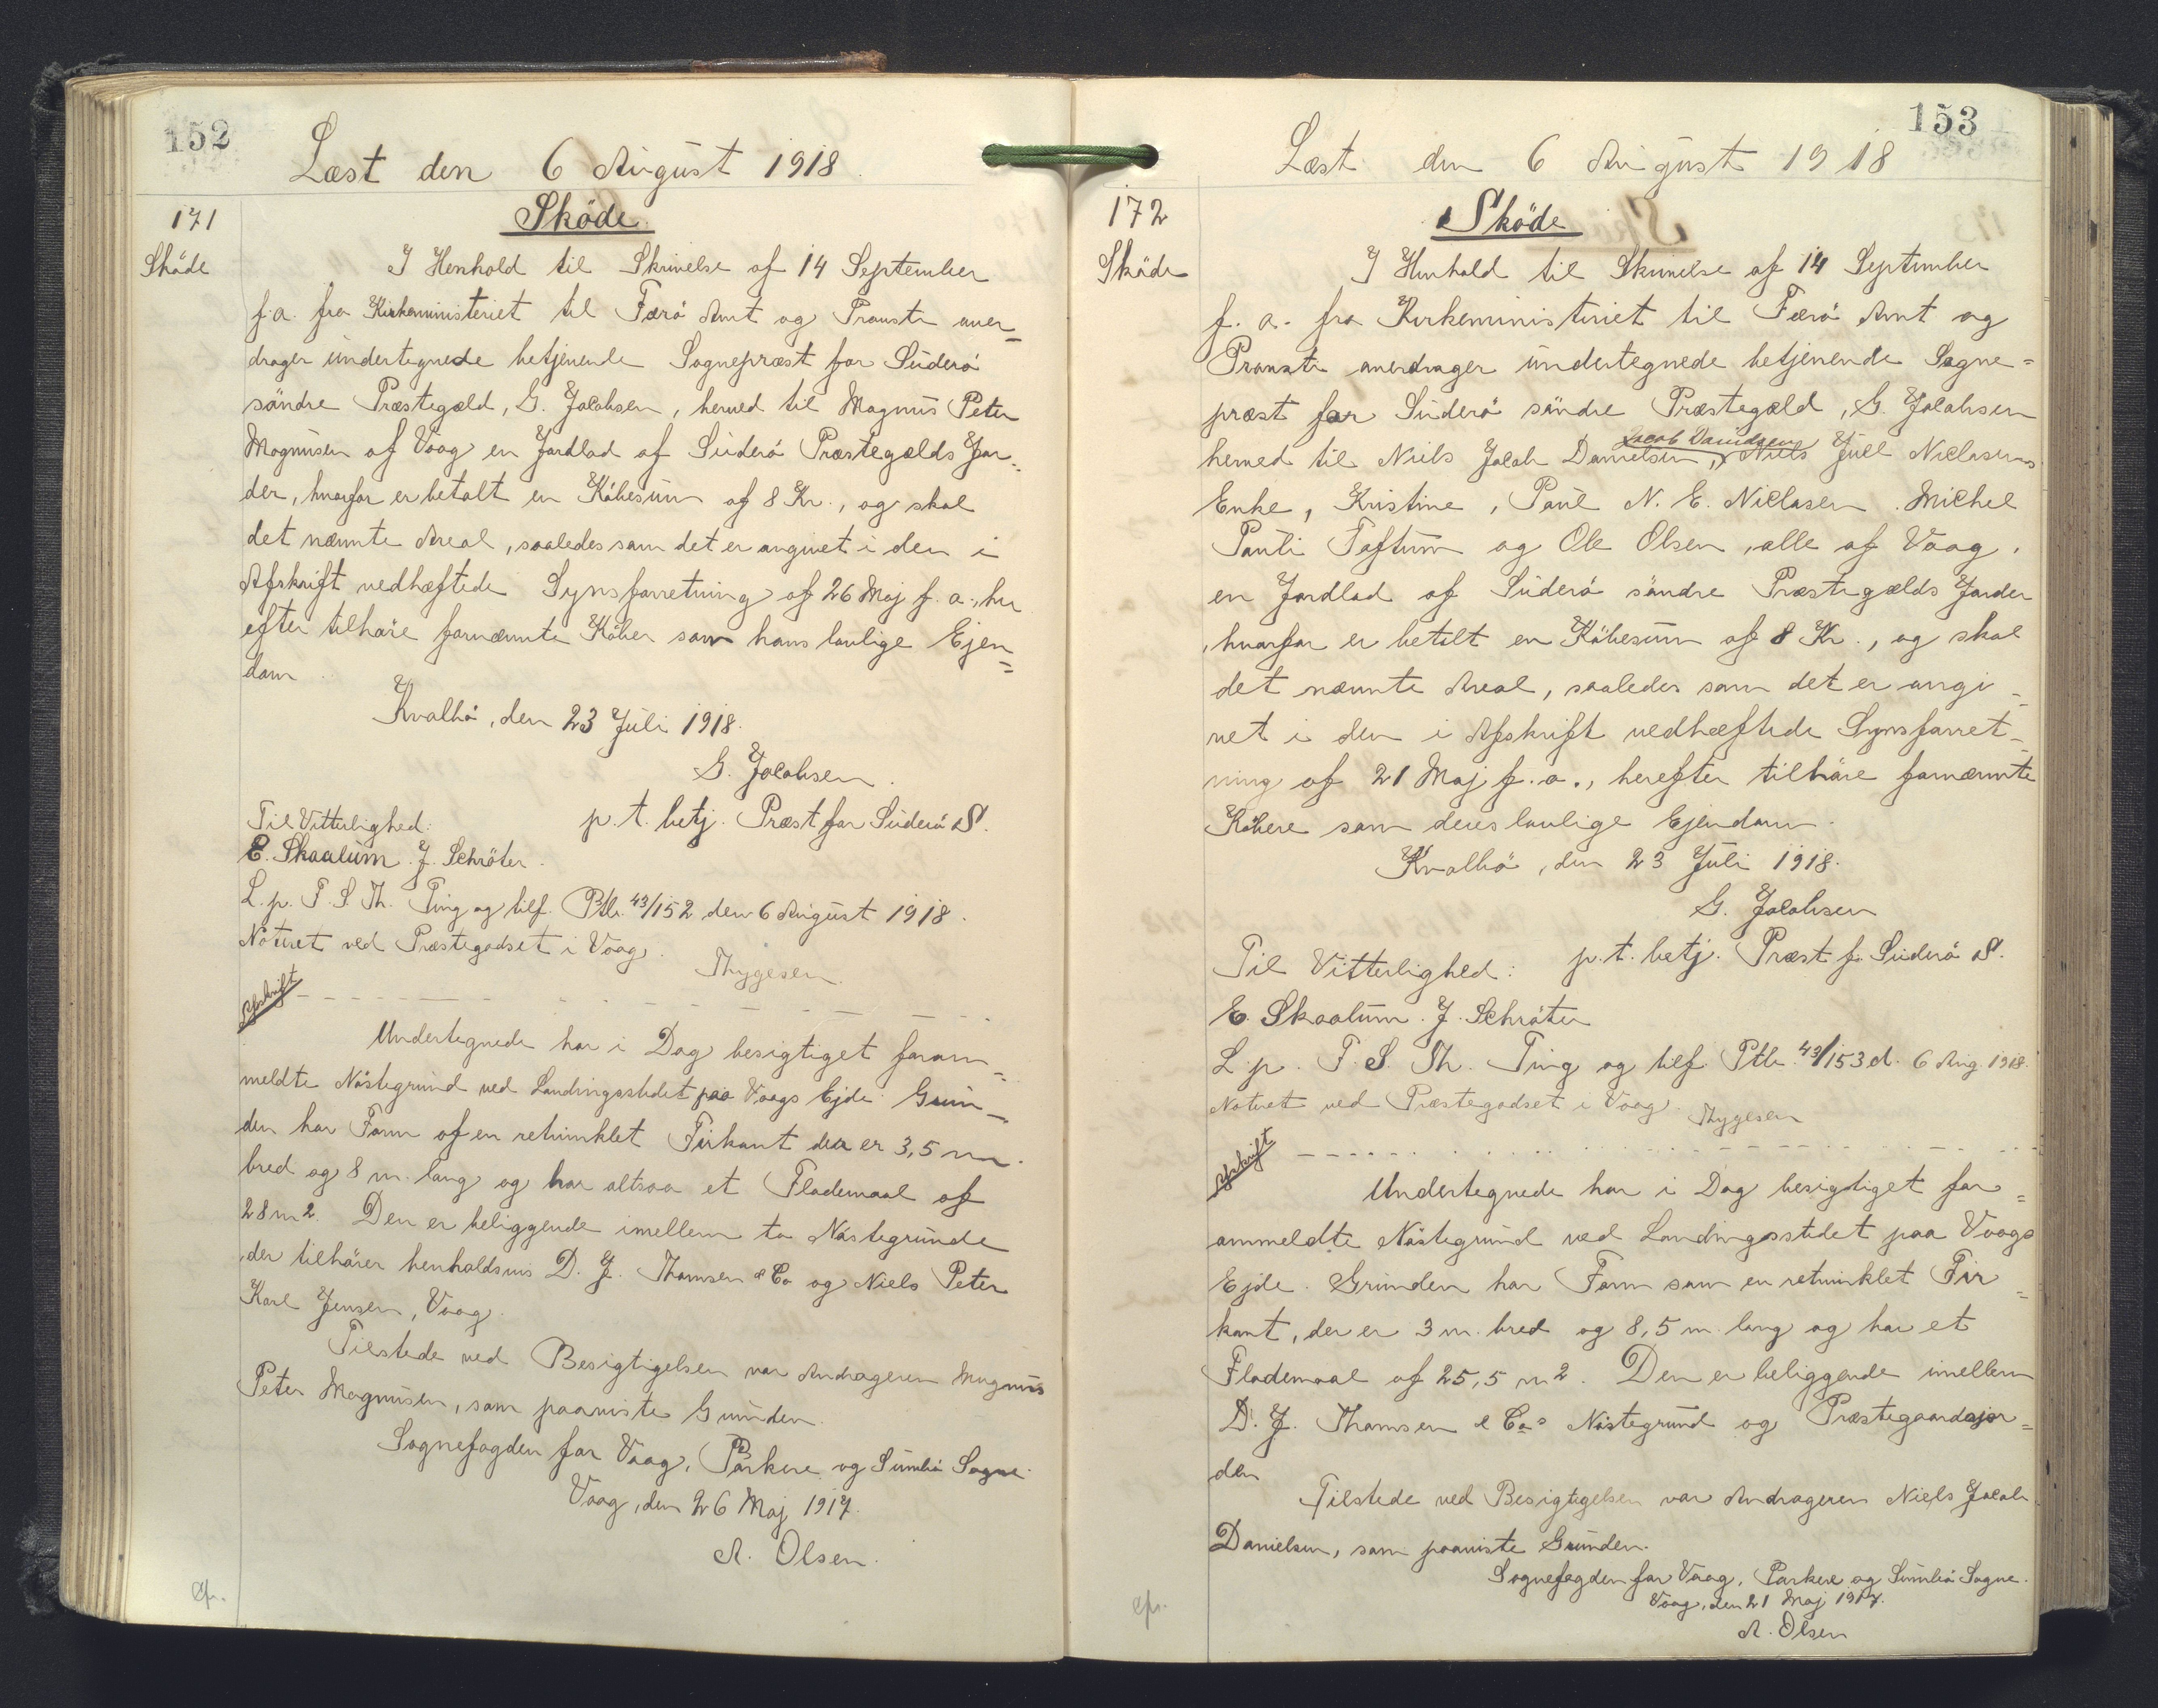 152
Læst den 6 August 1918.
171
Sköde
Sköde
I Henhold til Skrivelse af 14 September
f.a. fra Kirkeministeriet til Færö Amt og Provsti over=
drager undertegnede betjenende Sognepræst for Suderö
söndre Præstegæld, G. Jacobsen, herved til Magnus Peter
Magnusen af Vaag en Jordlod af Suderö Præstegælds Jor=
der, hvorfor er betalt en Köbesum af 8 Kr., og skal
det nævnte Areal, saaledes som det er angivet i den i
Afskrift vedhæftede Synsforretning af 26 Maj f. a., her
efter tilhöre fornævnte Köber som hans lovlige Ejen=
dom.
Kvalbö, den 23 Juli 1918.
G. Jacobsen.
p. t. betj. Præst for Suderö S.
Til Vitterlighed:
E. Skaalum. J. Schröter.
L. p. T. S. Th. Ting og tilf. Ptb. 43/152 den 6 August 1918.
Noteret ved Præstegodset i Vaag.
Thygesen.
Afskrift
Undertegnede har i Dag besigtiget foran=
meldte Nöstegrund ved Landingsstedet paa Vaags Ejde. Grun=
den har Form af en retvinklet Firkant der er 3,5 m.
bred og 8 m. lang og har altsaa et Flademaal af
28 m2. Den er beliggende imellem to Nöstegrunde
, der tilhörer henholdsvis D. J. Thomsen & Co og Niels Peter
Karl Jensen, Vaag.
Tilstede ved Besigtigelsen var Andrageren Magnus
Peter Magnusen, som paaviste Grunden.
Sognefogden for Vaag, Porkere og Sumbö Sogne.
Vaag, den 26 Maj 1917.
A. Olsen.
153
Læst den 6 August 1918
172
Sköde
Sköde
I Henhold til Skrivelse af 14 September
f. a. fra Kirkeministeriet til Færö Amt og
Provsti overdrager undertegnede betjenende Sogne=
præst for Suderö söndre Præstegæld, G. Jacobsen
Jacob Danielsen
herved til Niels Jacob Danielsen, Niels Juel Niclasens
Enke, Kristine, Paul N. E. Niclasen. Michel
Pauli Toftum og Ole Olsen, alle af Vaag,
en Jordlod af Suderö söndre Præstegælds Jorder
, hvorfor er betalt en Köbesum af 8 Kr., og skal
det nævnte Areal, saaledes som det er angi=
vet i den i Afskrift vedhæftede Synsforret=
ning af 21 Maj f. a., herefter tilhöre fornævnte
Köbere som deres lovlige Ejendom.
Kvalbö, den 23 Juli 1918.
G. Jacobsen
p. t. betj. Præst f. Suderö S.
Til Vitterlighed:
E. Skaalum. J. Schröter
L. p. T. S. Th. Ting og tilf. Ptb. 43/153 d. 6 Aug. 1918.
Noteret ved Præstegodset i Vaag.
Thygesen
Afskrift
Undertegnede har i Dag besigtiget for=
ommeldte Nöstegrund ved Landingsstedet paa Vaags
Ejde. Grunden har Form som en retvinklet Fir=
kant, der er 3 m. bred og 8,5 m. lang og har et
Flademaal af 25,5 m2. Den er beliggende imellem
D. J. Thomsen & Cos Nöstegrund og Præstegaardsjor=
den
Tilstede ved Besigtigelsen var Andrageren Niels Jacob
Danielsen, som paaviste Grunden.
Sognefogden for Vaag, Porkere og Sumbö Sogne.
Vaag, den 21 Maj 1917.
A. Olsen